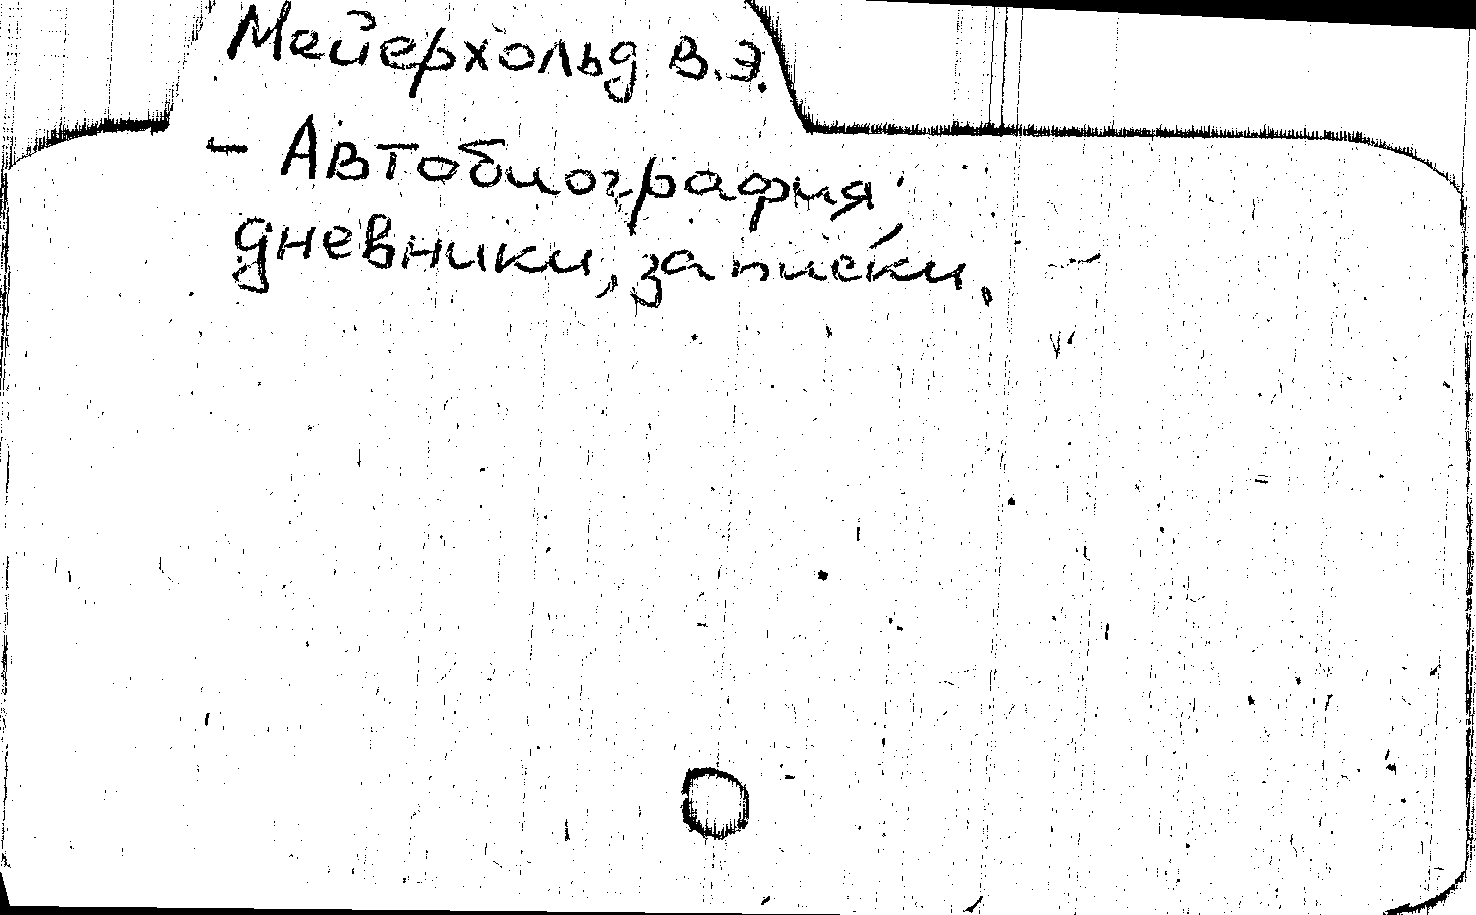 Мейерхольд В.Э.
- Автобиография,
дневники, записки.